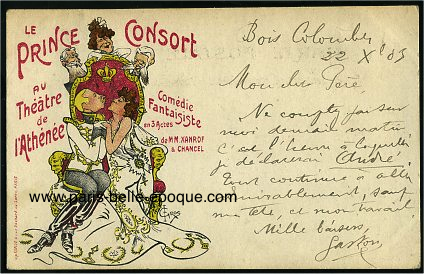 LE
PRINCE CONSORT
AU
Théâtre
de
l'Athénée
Comédie
Fantaisiste
en 3 Actes
de MM. XANROF
& CHANCEL
www.paris-belle-epoque.com
Bois Colombes
22 Xe 03
Mon cher Père
Ne compte pas sur
moi demain matin
c'est l'heure à laquelle
je
Tout continue à aller
admirablement, sauf
ma tête, et mon travail.
Mille baisers
Gaston